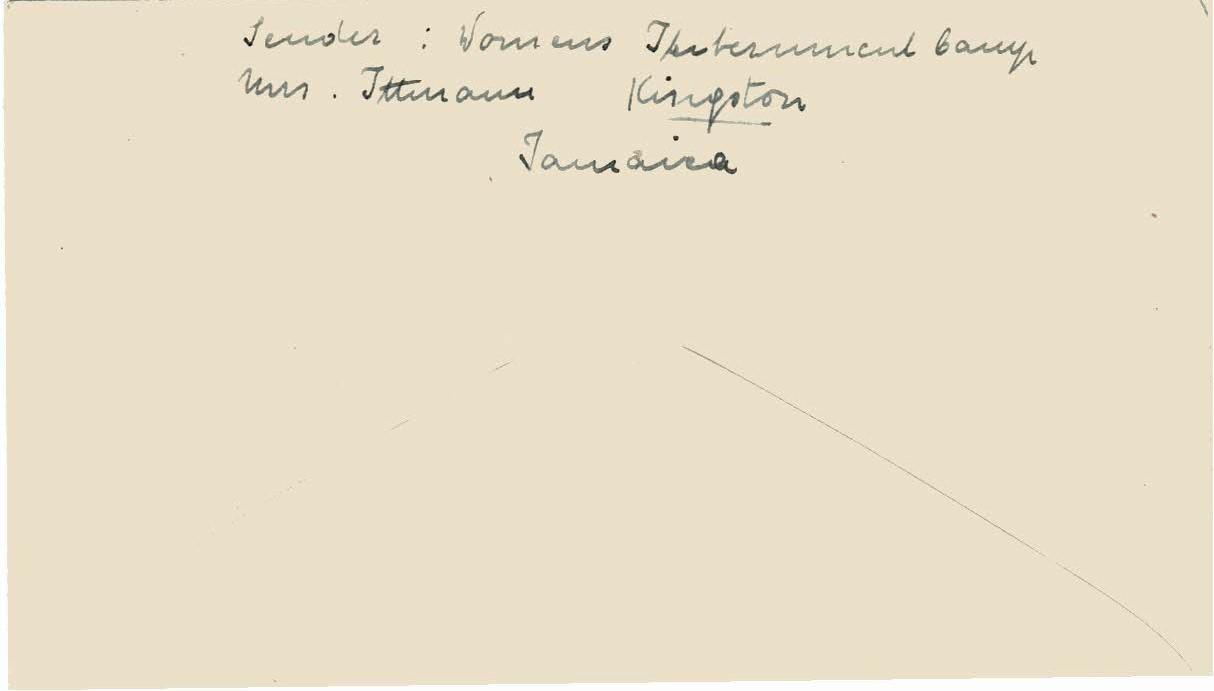 Sender : Womens Internment Camp
Mrs. Ittmann Kingston
Jamaica